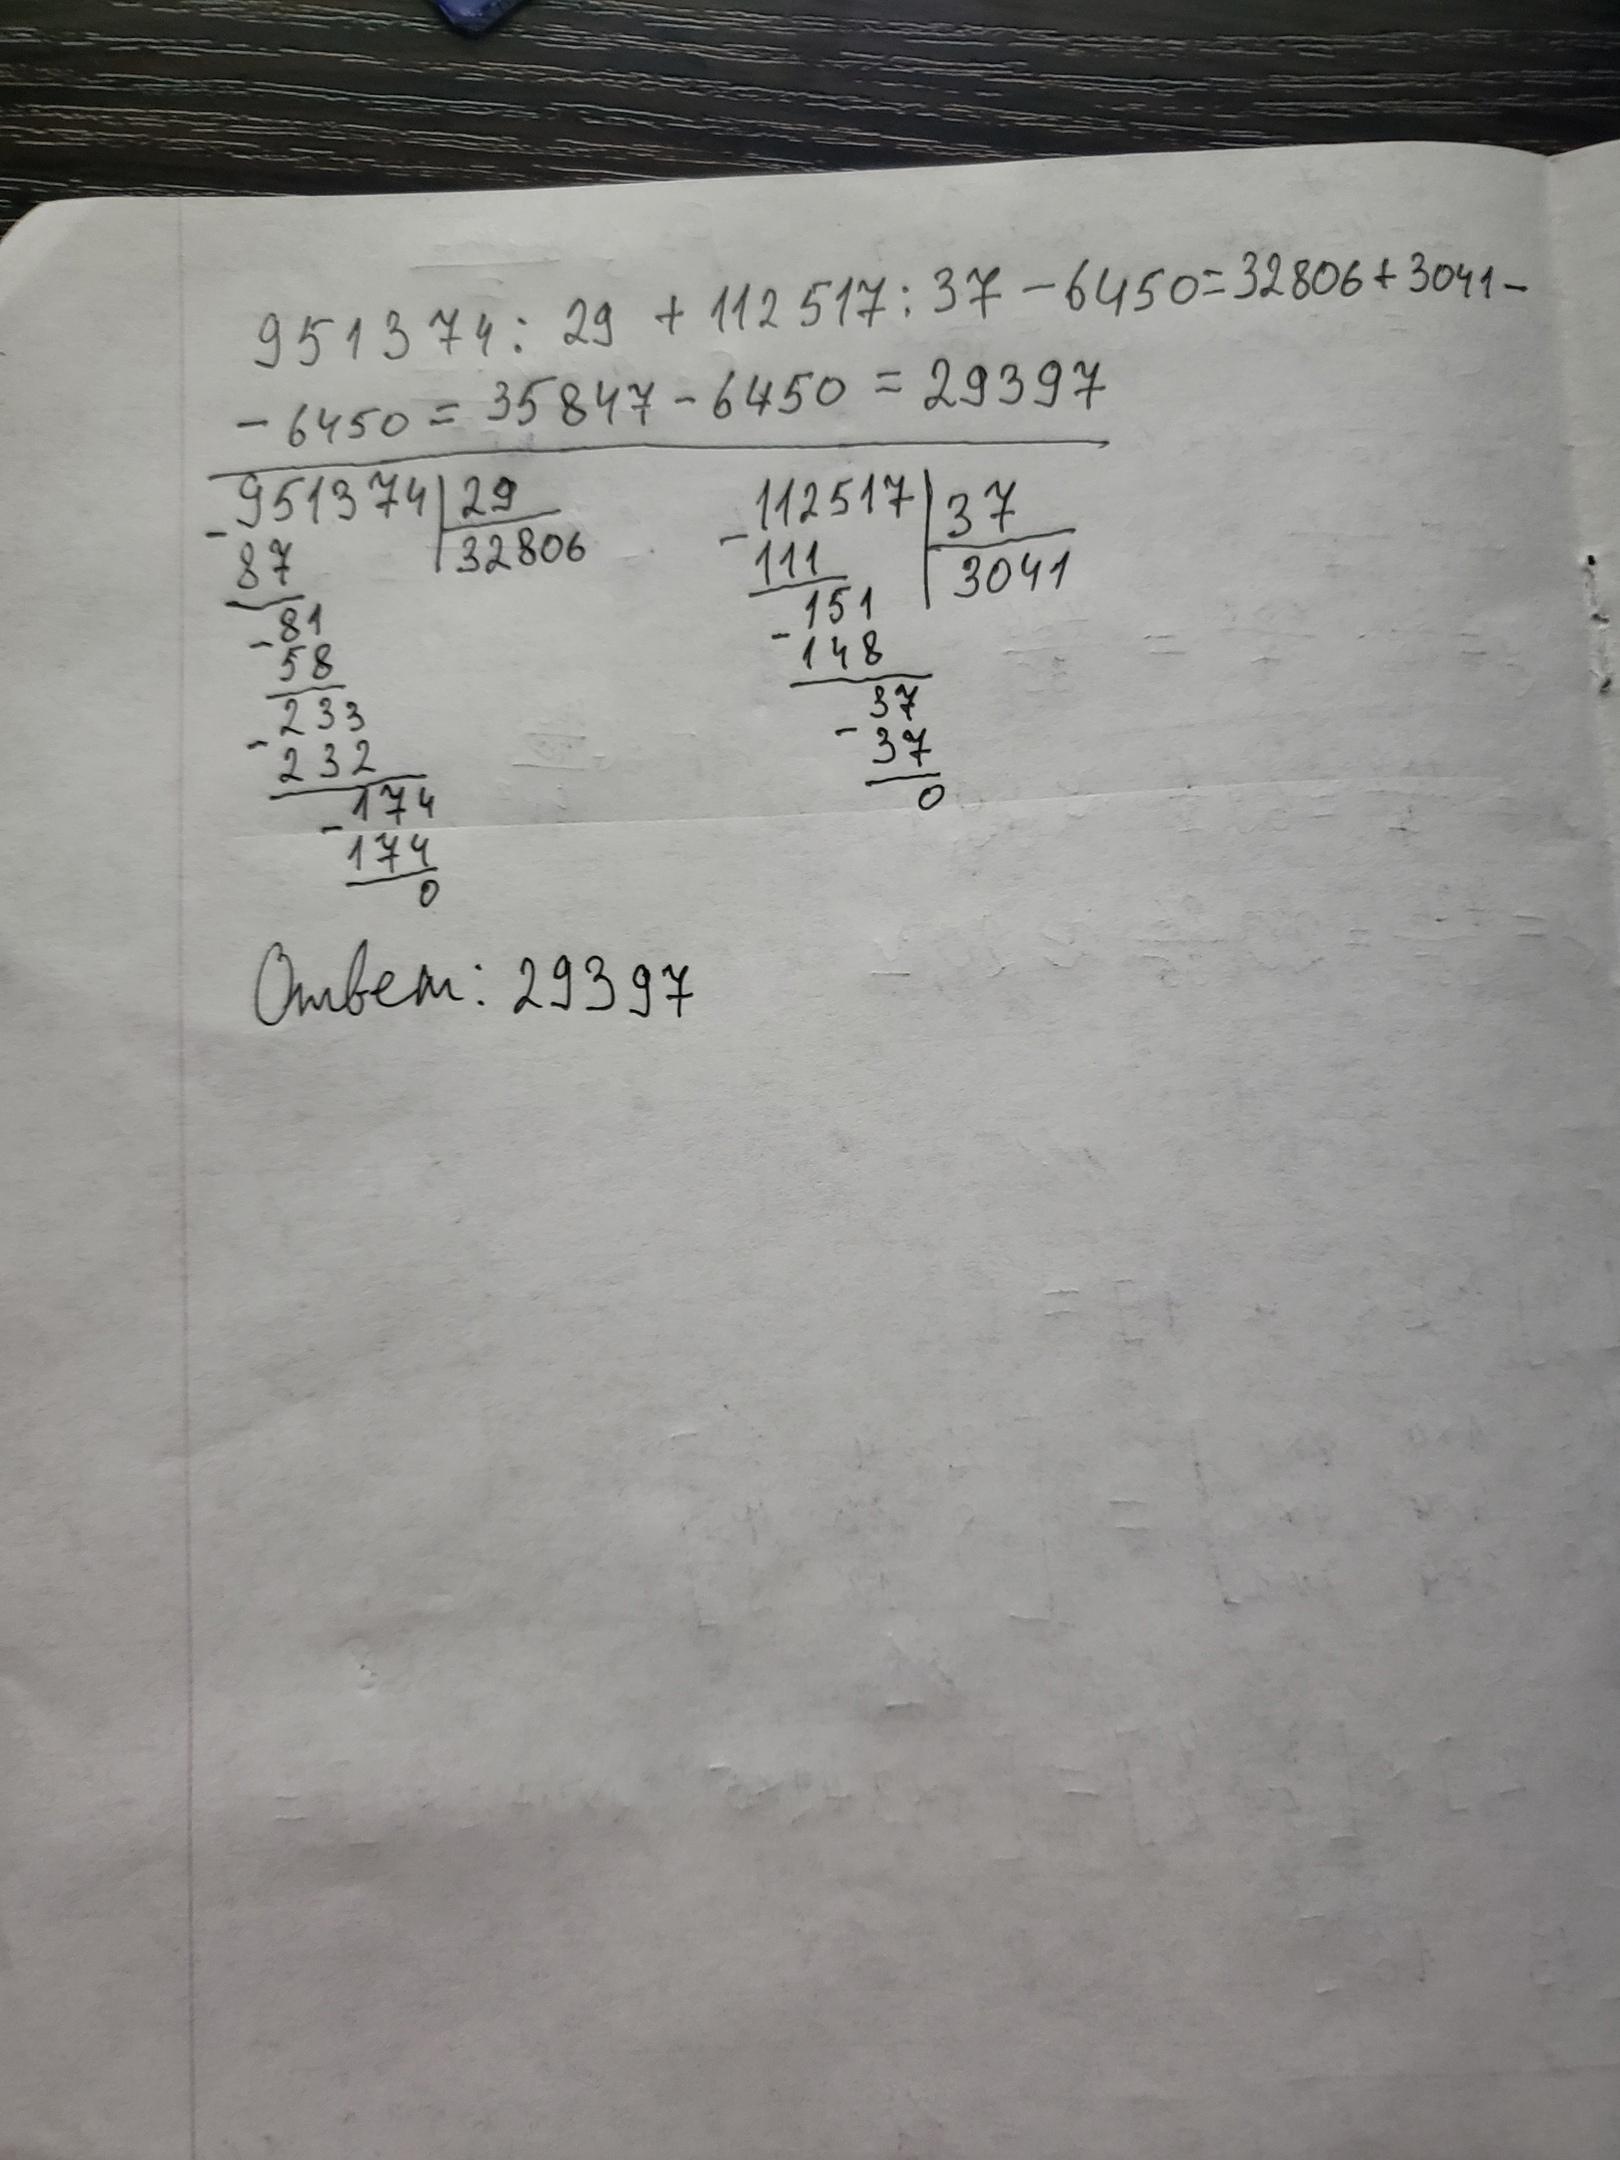 951374: 29 + 112517: 37 - 6450=32806+3041-
- 6450 = 35847 - 6450 = 29397
- 951374 | 29
87 32806
- 81
58
- 233
232
- 174
174
0
- 112517 | 37
111 3041
- 151
148
- 37
37
0
Ответ: 29397